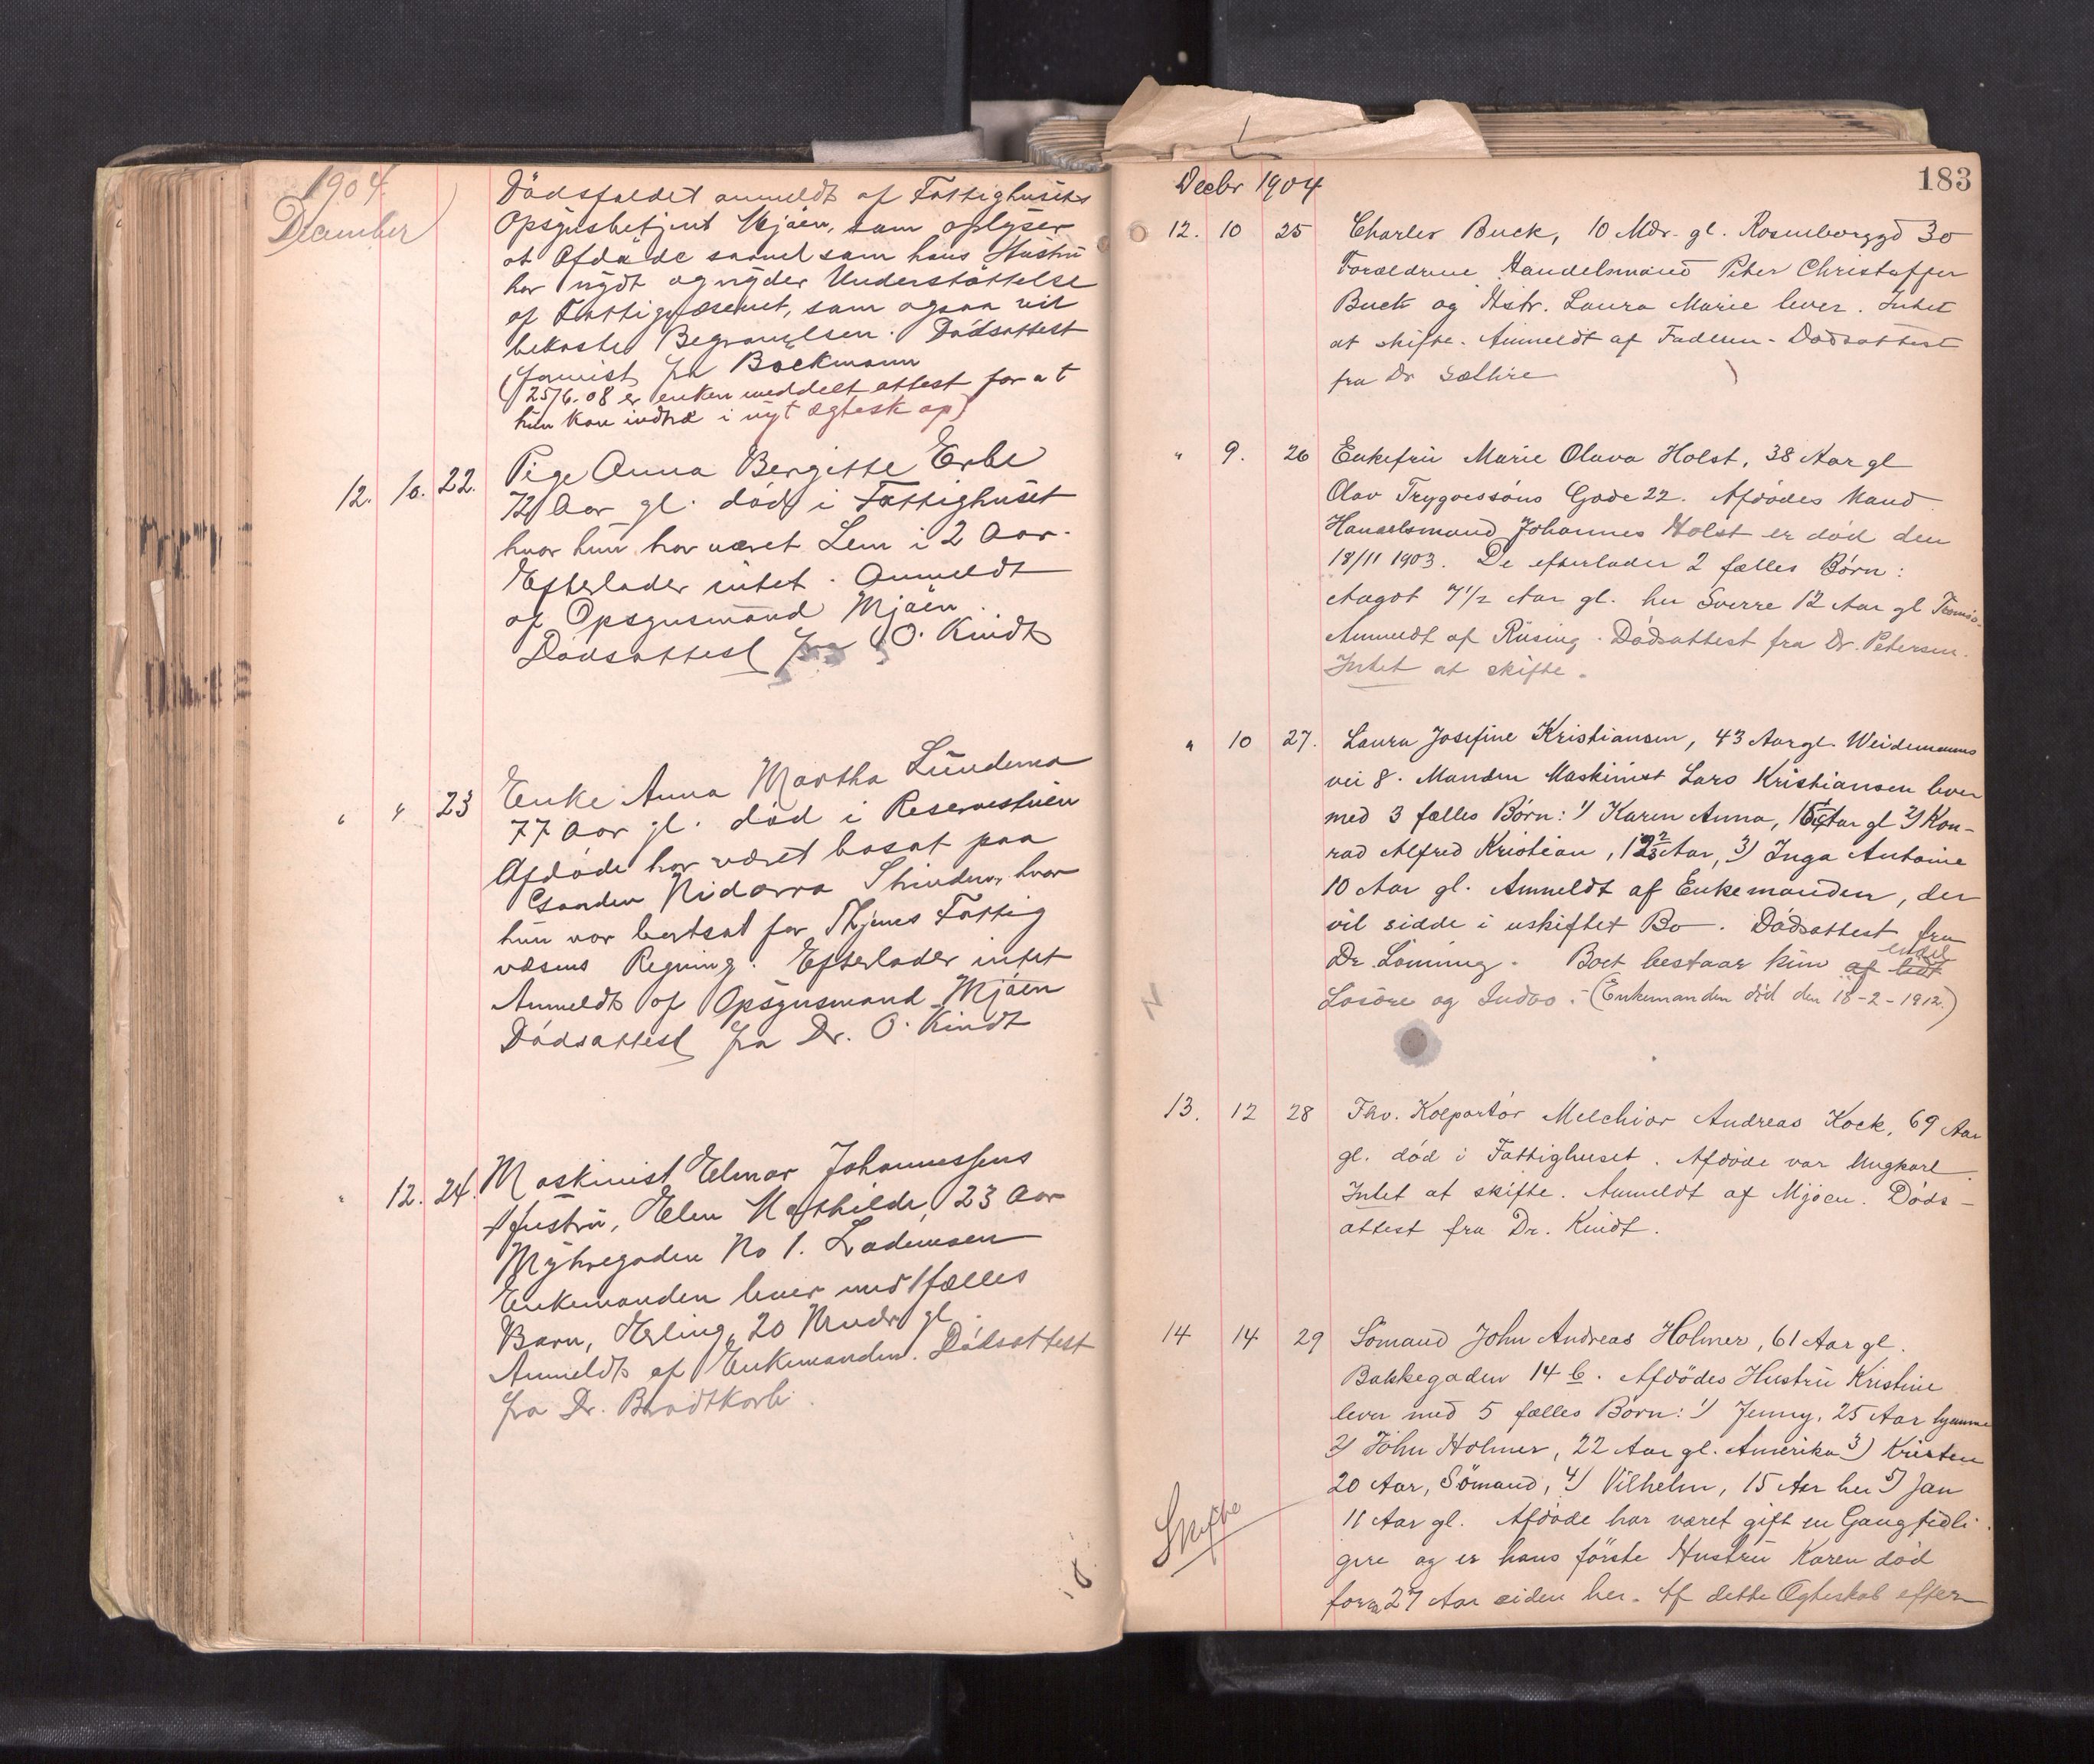 1904
December
Dödsfaldet anmeldt af Fattighusets
Opsynsbetjent Mjöen, som oplyser
at Afdøde samt som hans Hustru
har nydt og nyder Understøttelse
af Fattigvæsenet, som ogsaa vil
bekoste Begravelsen. Dødsattest
fra Bockmann
(25/6-08 er enken meddelt attest for at
hun kan indtræ i nyt ægteskap)
12. 10. 22. Pige Anna Bergitte Erbe
72 Aar gl. død i Fattighuset
hvor hun har været Lem i 2 Aar.
Efterlader intet. Anmeldt
af Opsynsmand Mjöen.
Dødsattest fra O. Kindt
" " 23 Enke Anna Martha Lundemo
77 Aar gl. død i Reservestuen
Afdøde har været bosat paa
Gaarden Nidarvo Strinden, hvor
hun var bortsat for Thjems Fattig
væsens Regning. Efterlader intet
Anmeldt af Opsynsmand Mjöen
Dødsattest fra Dr. O. Kindt
" 12. 24. Maskinist Elmar Johannessens
Hustru, Elen Mathilde, 23 Aar
Myhregaden No 1. Lademoen
Enkemanden lever med 1 fælles
Barn, Erling, 20 Mndr gl.
Anmeldt af Enkemanden. Dødsattest
fra Dr. Bradtkorb.
Decbr 1904
183
12. 10 25 Charles Buck, 10 Mdr. gl. Rosenborggd 30
Forældrene Handelsmand Peter Christoffer
Buck og Hstr. Laura Marie lever. Intet
at skifte. Anmeldt af Faderen. Dødsattest
fra Dr
" 9. 26 Enkefru Marie Olava Holst, 38 Aar gl
Olav Trygvessöns Gade 22. Afdødes Mand
Handelsmand Johannes Holst er død den
18/11 1903. De efterlader 2 fælles Børn:
Aagot 7 1/2 Aar gl. her Sverre 12 Aar gl Tromsö.
Anmeldt af Rüsing. Dødsattest fra Dr. Petersen.
Intet at skifte.
" 10 27. Laura Josefine Kristiansen, 43 Aar gl. Weidemanns
vei 8. Manden Maskinist Lars Kristiansen lever
med 3 fælles Børn: 1) Karen Anna, Aar gl 2) Kon-
rad Alfred Kristian, Aar, 3) Inga Antonie
10 Aar gl. Anmeldt af Enkemanden, der
vil sidde i uskiftet Bo. Dødsattest fra
Dr. Löning. Boet bestaar kun af lidt endel
Løsøre og Indbo. (Enkemanden død den 18-2-1912.)
13. 12 28 Fhv. Kolportör Melchior Andreas Kock, 69 Aar
gl. død i Fattighuset. Afdøde var Ungkarl.
Intet at skifte. Anmeldt af Mjöen. Døds-
attest fra Dr. Kindt.
14 14 29 Sömand John Andreas Holmer, 61 Aar gl.
Bakkegaden 14 b. Afdødes Hustru Kristine
lever med 5 fælles Børn: 1) Jenny, 25 Aar hjemme
2) John Holmer, 22 Aar gl. Amerika 3) Kristen
20 Aar, Sömand, 4) Vilhelm, 15 Aar her 5) Jan
11 Aar gl. Afdøde har været gift en Gang tidli-
gere og er hans første Hustru Karen død
for 27 Aar siden her. Af dette Ægteskab efter
Skifte